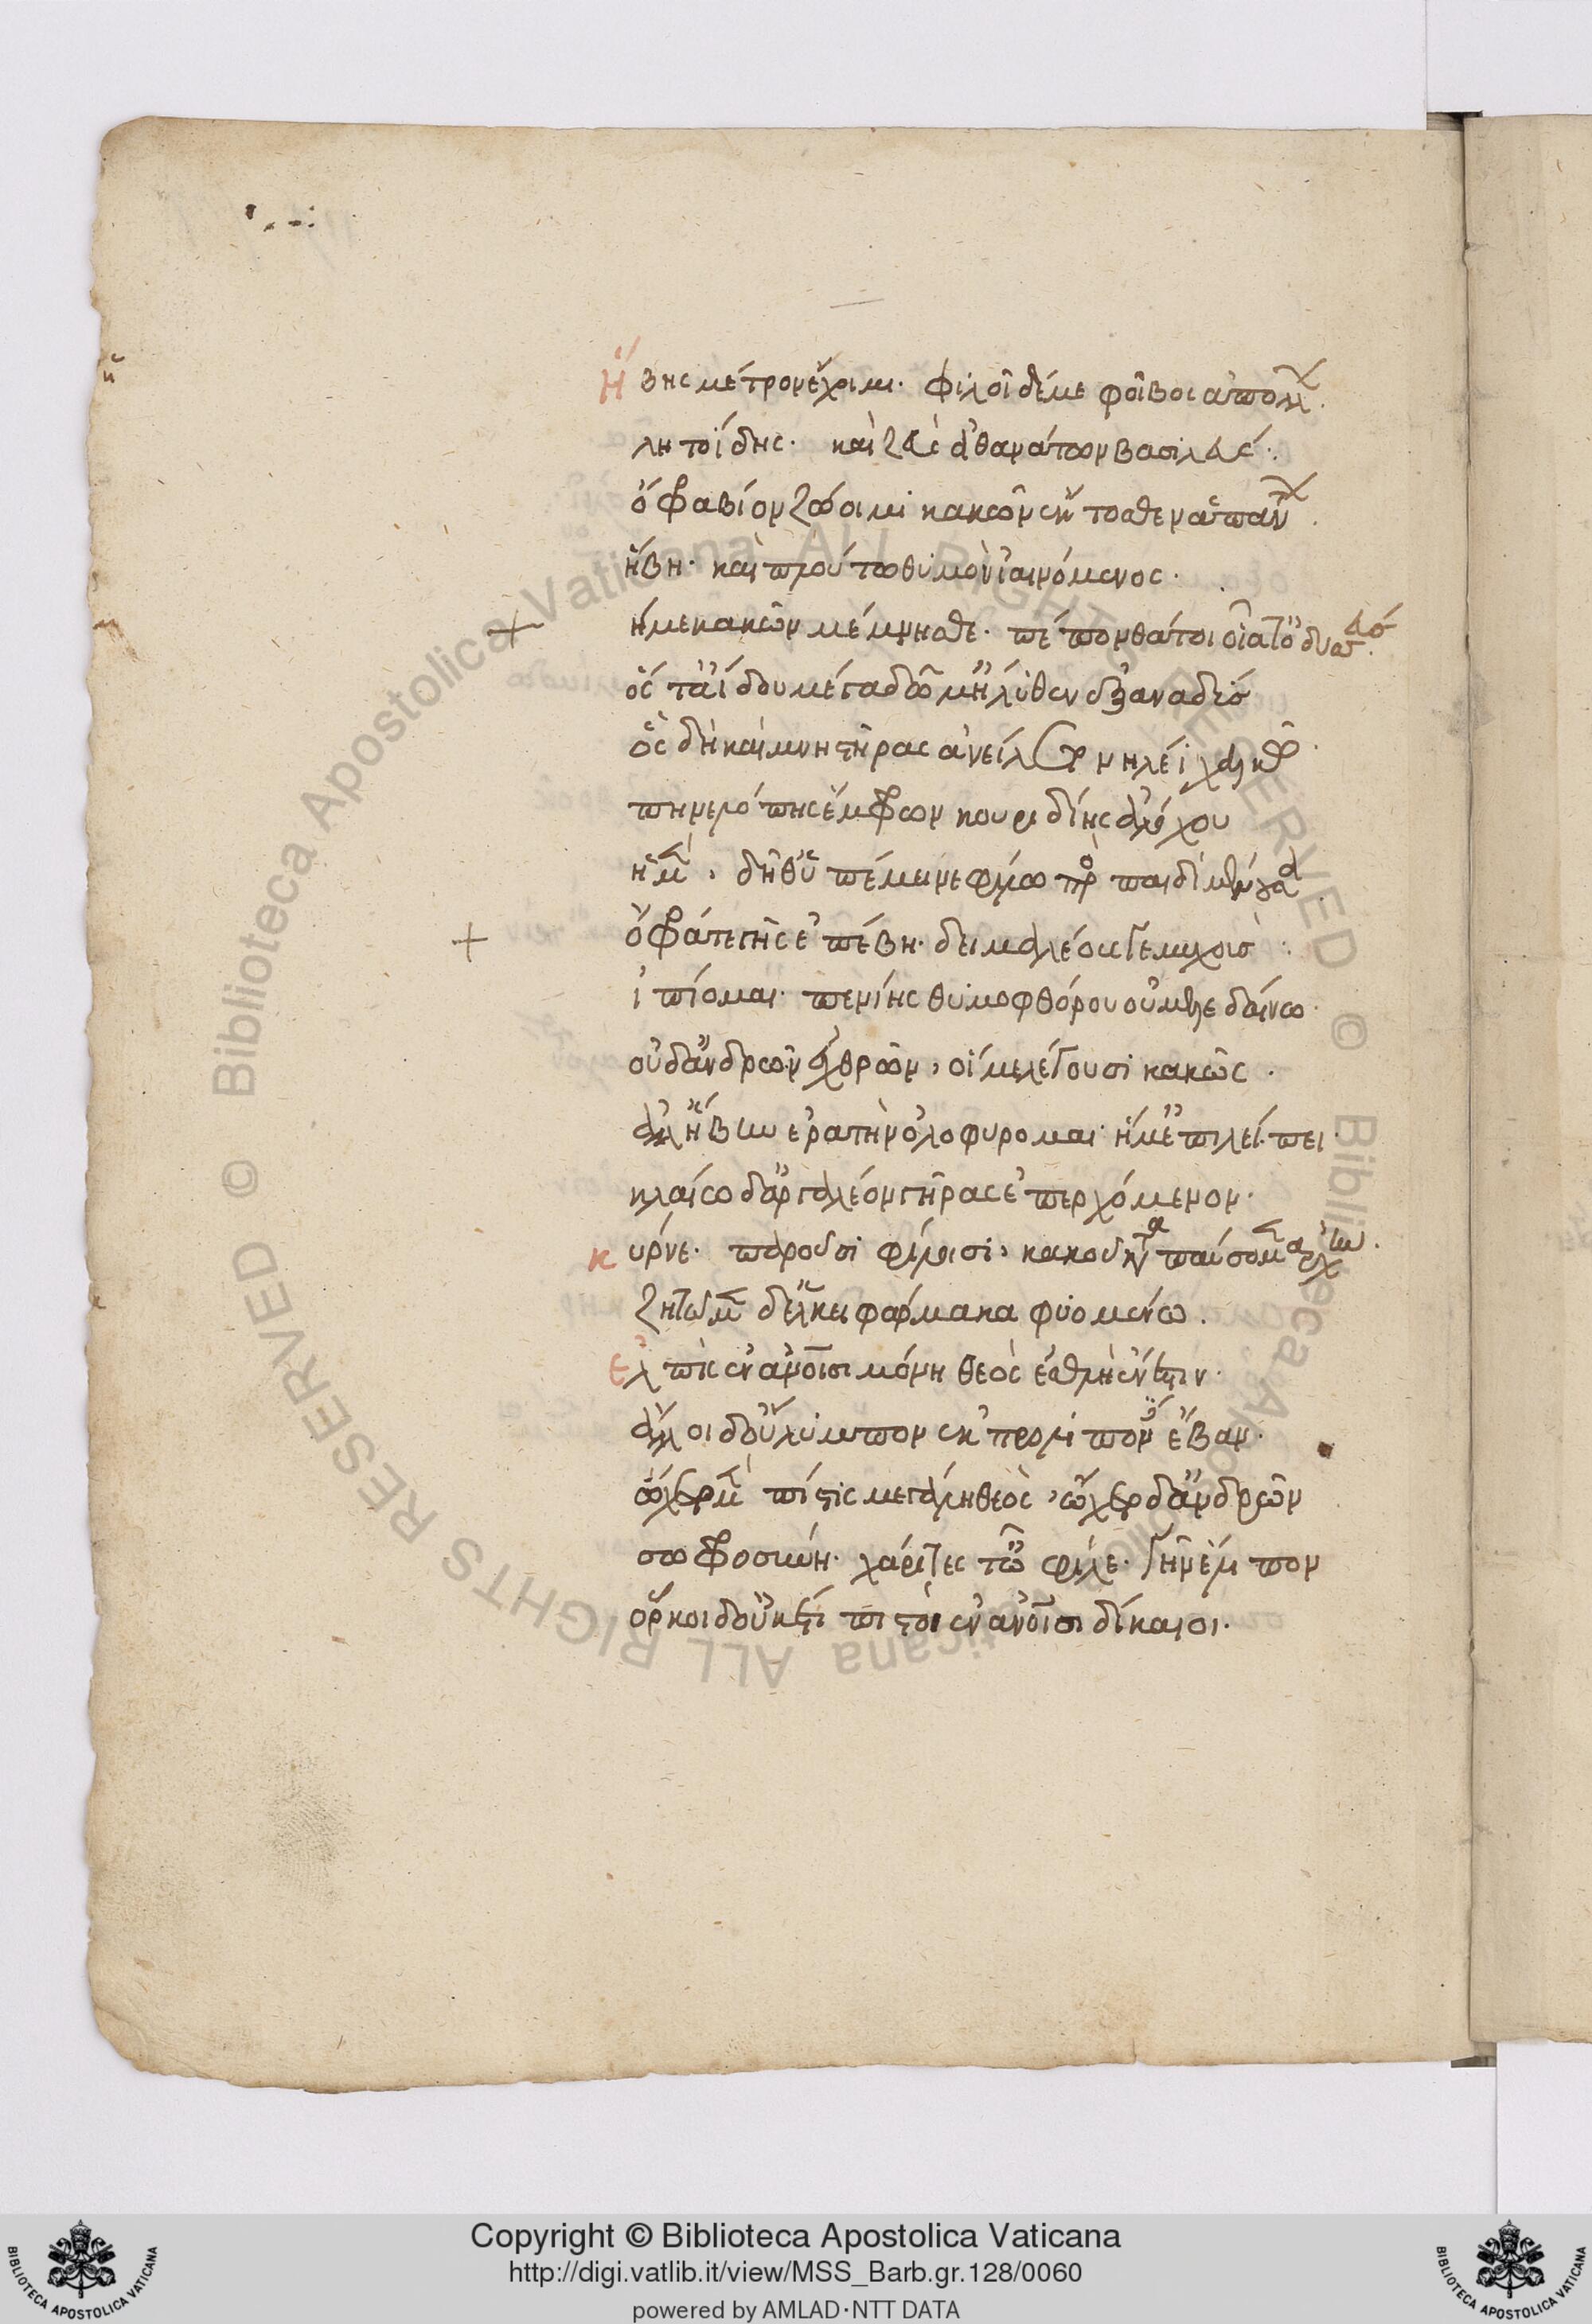 Ἥβης μέτρον ἔχοιμι· φιλοῖ δέ με φοῖβος ἀπόλλ
λητοίδης· καὶ ζεὺς ἀθανάτων βασιλεύς·
ὄφρα βίον ζώοιμι κακῶν ἔκτοσθεν ἁπάντ
ἥβη· καὶ πλούτω θυμὸν ἰαινόμενος·
μή με κακῶν μέμνησθε· πέπονθά τοι οἷά τ' ὀδυσεύσ
ὅς τ' ἀΐδου μέγα δῶμ' ἤλυθεν ἐξαναδύσ
ὃς δὴ καὶ μνηστῆρας ἀνείλετο νηλέϊ χαλκῶ·
πηνελόπης ἔμφρων κουριδίης ἀλόχου
ἥ μιν δήθ' ὑπέμεινε φίλω πρὸς παιδὶ μένουσα
ὄφρα τε γῆς ἐπέβη· δειμαλέους τε μυχούσ
ἐμπίομαι· πενίης θυμοφθόρου οὐ μελεδαίνω·
οὐδ' ἀνδρῶν ἐχθρῶν, οἵ με λέγουσι κακῶς·
ἀλλ' ἥβην ἐρατὴν ὀλοφύρομαι· ἥ μ' ἐπιλείπει·
κλαίω δ' ἀργαλέον γῆρας ἐπερχόμενον·
κύρνε· παροῦσι φίλοισι, κακοῦ καταπαύσομεν ἀρχήν·
ζητῶμεν δ' ἕλκει φάρμακα φυομένω·
Ἐλπὶς ἐν ἀνθρώποισι μόνη θεὸς ἐσθλὴ ἔνεστιν·
ἄλλοι δ' οὔλυμπον ἐκπρολιπόντες ἔβαν·
ὤχετο μὲν πίστις μεγάλη θεὸς, ὤχετο δ' ἀνδρῶν
σωφροσύνη· χάριτές τ' ὦ φίλε· γῆν ἔλιπον
ὅρκοι δ' οὐκέτι πιστοὶ ἐν ἀνθρώποισι δίκαιοι·
Copyright © Biblioteca Apostolica Vaticana
http://digi.vatlib.it/view/MSS_Barb.gr.128/0060
powered by AMLAD·NTT DATA